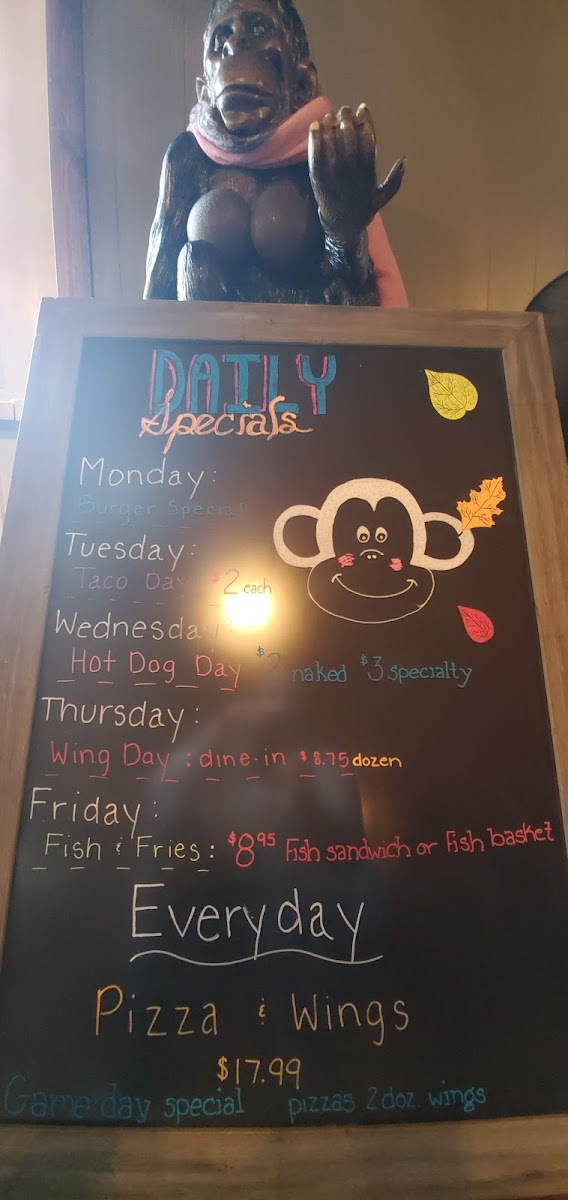 DAILY
Specials
Monday:
Burger Special
Tuesday:
Taco Day $2 each
Wednesday:
Hot Dog Day $2 naked $3 specialty
Thursday:
Wing Day : dine-in $8.75 dozen
Friday:
Fish & Fries: $8.95 Fish sandwich or Fish basket
Everyday
Pizza & Wings
$17.99
Game day special pizzas 2 doz. wings